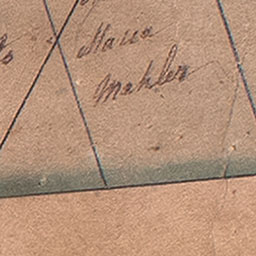 Maria
Mahler